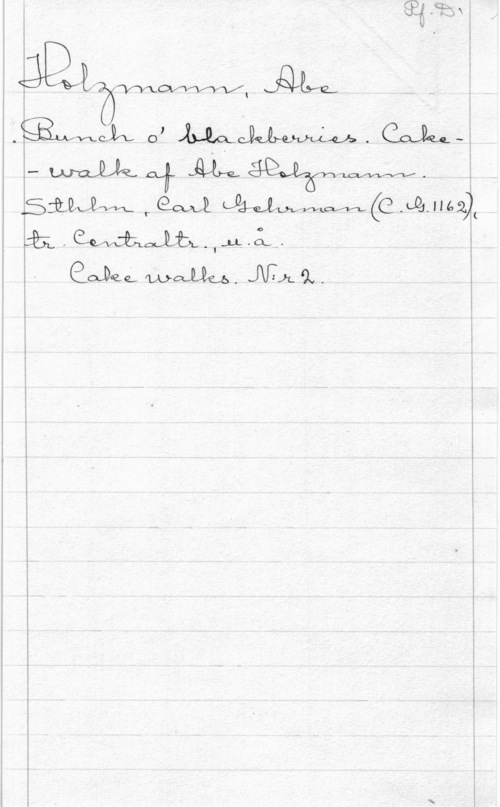 Pf. D:
Holzmann, Abe
Bunch o' blackberries. Cake-
- walk af Abe Holzmann.
Sthlm, Carl Gehrman (C.G.1162),
tr. Centraltr., u.å.
Cake walks. N:r 2.